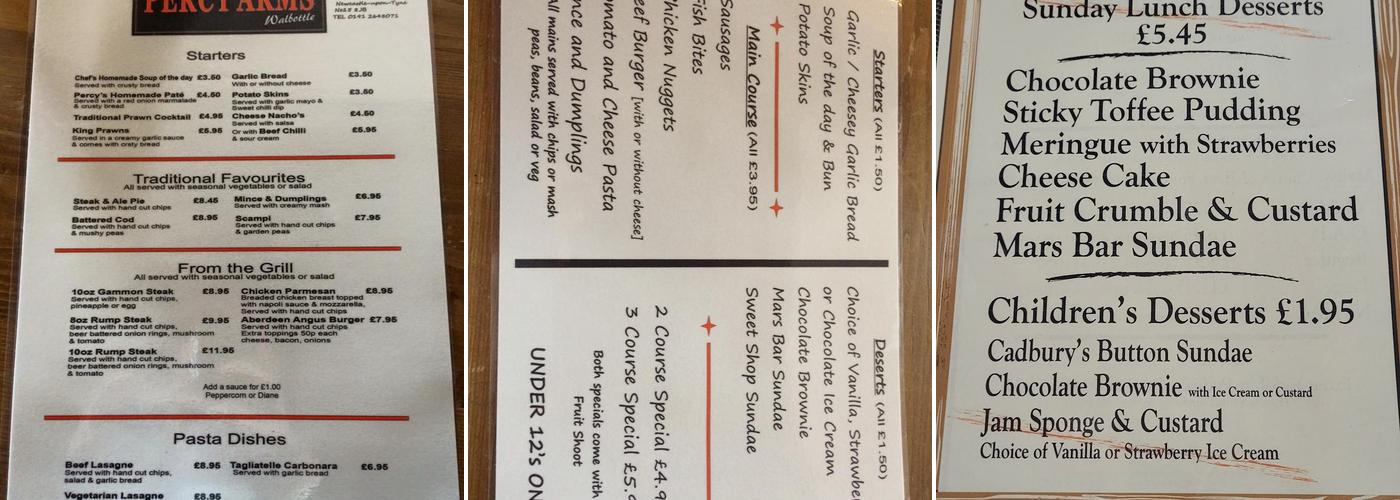 PERCY ARMS
Walbottle
Newcastle-upon-Tyne
TEL 0191 2648071
Starters
Chef's Homemade Soup of the day £3.50
Served with crusty bread
Percy's Homemade Paté £4.50
Served with a red onion marmalade
& crusty bread
Traditional Prawn Cocktail £4.95
King Prawns £5.95
Served in a creamy garlic sauce
& comes with crsty bread
Garlic Bread £3.50
With or without cheese
Potato Skins £3.50
Served with garlic mayo &
Sweet chilli dip
Cheese Nacho's £4.50
Served with salsa
Or with Beef Chilli £5.95
& sour cream
Traditional Favourites
All served with seasonal vegetables or salad
Steak & Ale Pie £8.45
Served with hand cut chips
Battered Cod £8.95
Served with hand cut chips
& mushy peas
Mince & Dumplings £6.95
Served with creamy mash
Scampi £7.95
Served with hand cut chips
& garden peas
From the Grill
All served with seasonal vegetables or salad
10oz Gammon Steak £8.95
Served with hand cut chips,
pineapple or egg
8oz Rump Steak £9.95
Served with hand cut chips,
beer battered onion rings, mushroom
& tomato
10oz Rump Steak £11.95
Served with hand cut chips,
beer battered onion rings, mushroom
& tomato
Chicken Parmesan £8.95
Breaded chicken breast topped
with napoli sauce & mozzarella,
Served with hand cut chips
Aberdeen Angus Burger £7.95
Served with hand cut chips,
Extra toppings 50p each
cheese, bacon, onions
Add a sauce for £1.00
Peppercorn or Diane
Pasta Dishes
Beef Lasagne £8.95
Served with hand cut chips,
salad & garlic bread
Vegetarian Lasagne £8.95
Tagliatelle Carbonara £6.95
Served with garlic bread
Starters (All £1.50)
Garlic / Cheesey Garlic Bread
Soup of the day & Bun
Potato Skins
Main Course (All £3.95)
Sausages
Fish Bites
Chicken Nuggets
Beef Burger [with or without cheese]
Tomato and Cheese Pasta
Mince and Dumplings
All mains served with chips or mash
peas, beans, salad or veg
Deserts (All £1.50)
Choice of Vanilla, Strawber
or Chocolate Ice Cream
Chocolate Brownie
Mars Bar Sundae
Sweet Shop Sundae
2 Course Special £4.9
3 Course Special £5.9
Both specials come with
Fruit Shoot
UNDER 12's ON
Sunday Lunch Desserts
£5.45
Chocolate Brownie
Sticky Toffee Pudding
Meringue with Strawberries
Cheese Cake
Fruit Crumble & Custard
Mars Bar Sundae
Children's Desserts £1.95
Cadbury's Button Sundae
Chocolate Brownie with Ice Cream or Custard
Jam Sponge & Custard
Choice of Vanilla or Strawberry Ice Cream